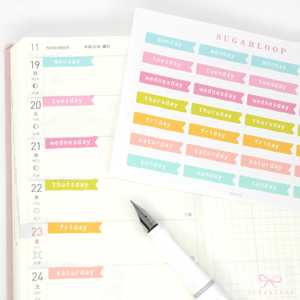 11
NOVEMBER
19
monday
20
tuesday
21
wednesday
22
thursday
23
friday
24
saturday
SUGARLOOP
monday monday monday
tuesday tuesday tuesday
wednesday wednesday wednesday
thursday thursday thursday
friday friday friday
saturday saturday saturday
sunday sunday sunday
sugarloop